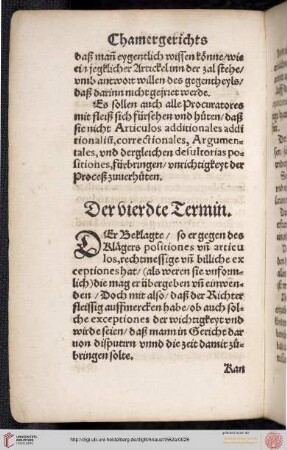 Chamergerichts
daß mañ eygentlich wissen könne/wie
ein jegklicher Artickel inn der zal stehe/
vmb antwort willen des gegentheyls/
daß darinn nicht geirret werde.
Es sollen auch alle Procuratores
mit fleiß sich fürsehen vnd hüten/daß
sie nicht Articulos additionales addi
tionaliū,correctionales, Argumen-
tales,vnd dergleichen desultorias po
sitiones,fürbringen/vnrichtigkeyt der
Proceß zuuerhüten.
Der vierdte Termin.
DEr Beklagte/ so er gegen des
Klägers positiones vñ articu
los,rechtmessige vñ billiche ex
ceptiones hat/(als weren sie vnform-
lich)die mag er übergeben vñ einwen-
den/Doch mit also/daß der Richter
fleissig auffmercken habe/ob auch sol-
che exceptiones der wichtigkeyt vnd
wirde seien/daß mann in Gericht dar
uon disputirn vnnd die zeit damit zů-
bringen solte.
Kan